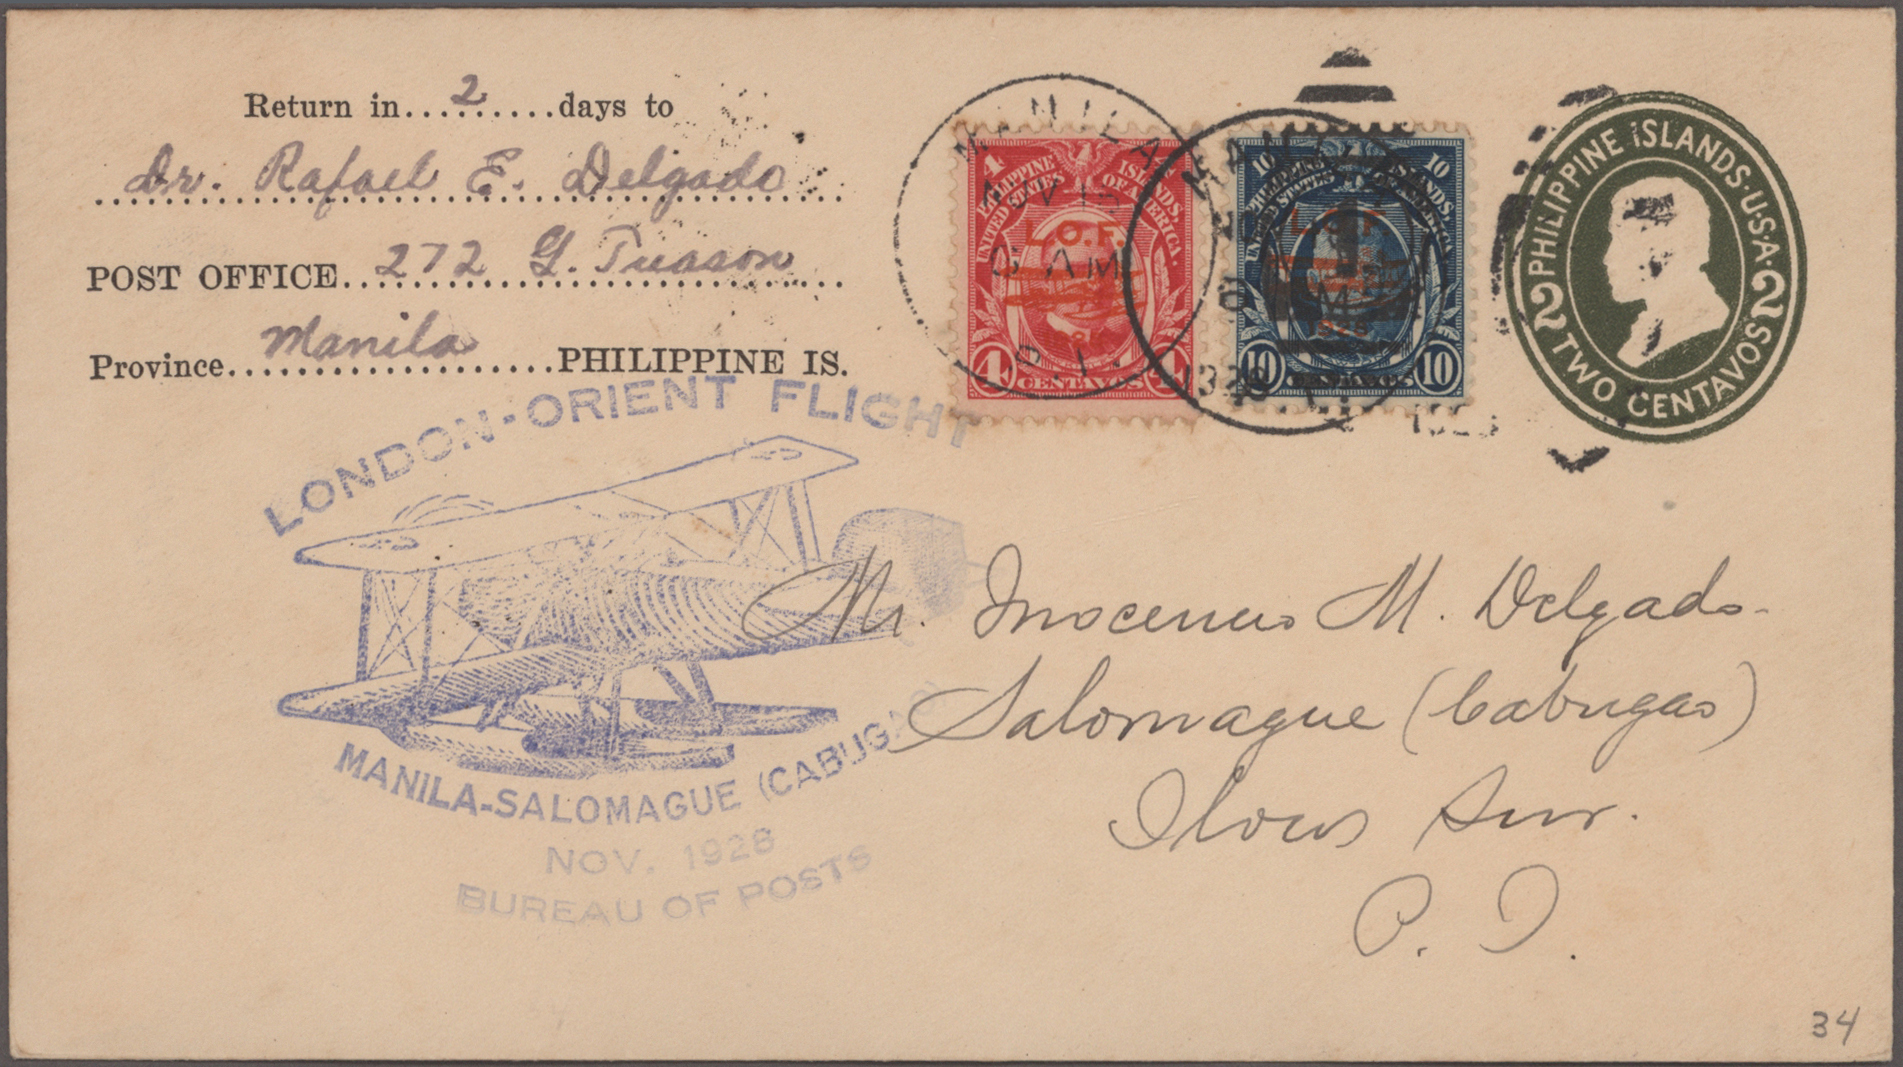 Return in....2.....days to
Dr. Rafael E. Delgado
POST OFFICE 272 G. Tuason
Province Manila PHILIPPINE IS.
MANILA
8 AM
P. I.
4
PHILIPPINE ISLANDS.
UNITED STATES OF AMERICA.
L.O.F.
1928
4 CENTAVOS 4
MANILA
1928
10 10
PHILIPPINE ISLANDS.
UNITED STATES OF AMERICA.
L.O.F.
1928
10 CENTAVOS 10
PHILIPPINE ISLANDS·U·S·A·
2 TWO CENTAVOS 2
LONDON-ORIENT FLIGHT
MANILA-SALOMAGUE (CABUGAO)
NOV. 1928
BUREAU OF POSTS
Mr. Inocencio M. Delgado
Salomague (Cabugao)
Ilocos Sur.
P. I.
34